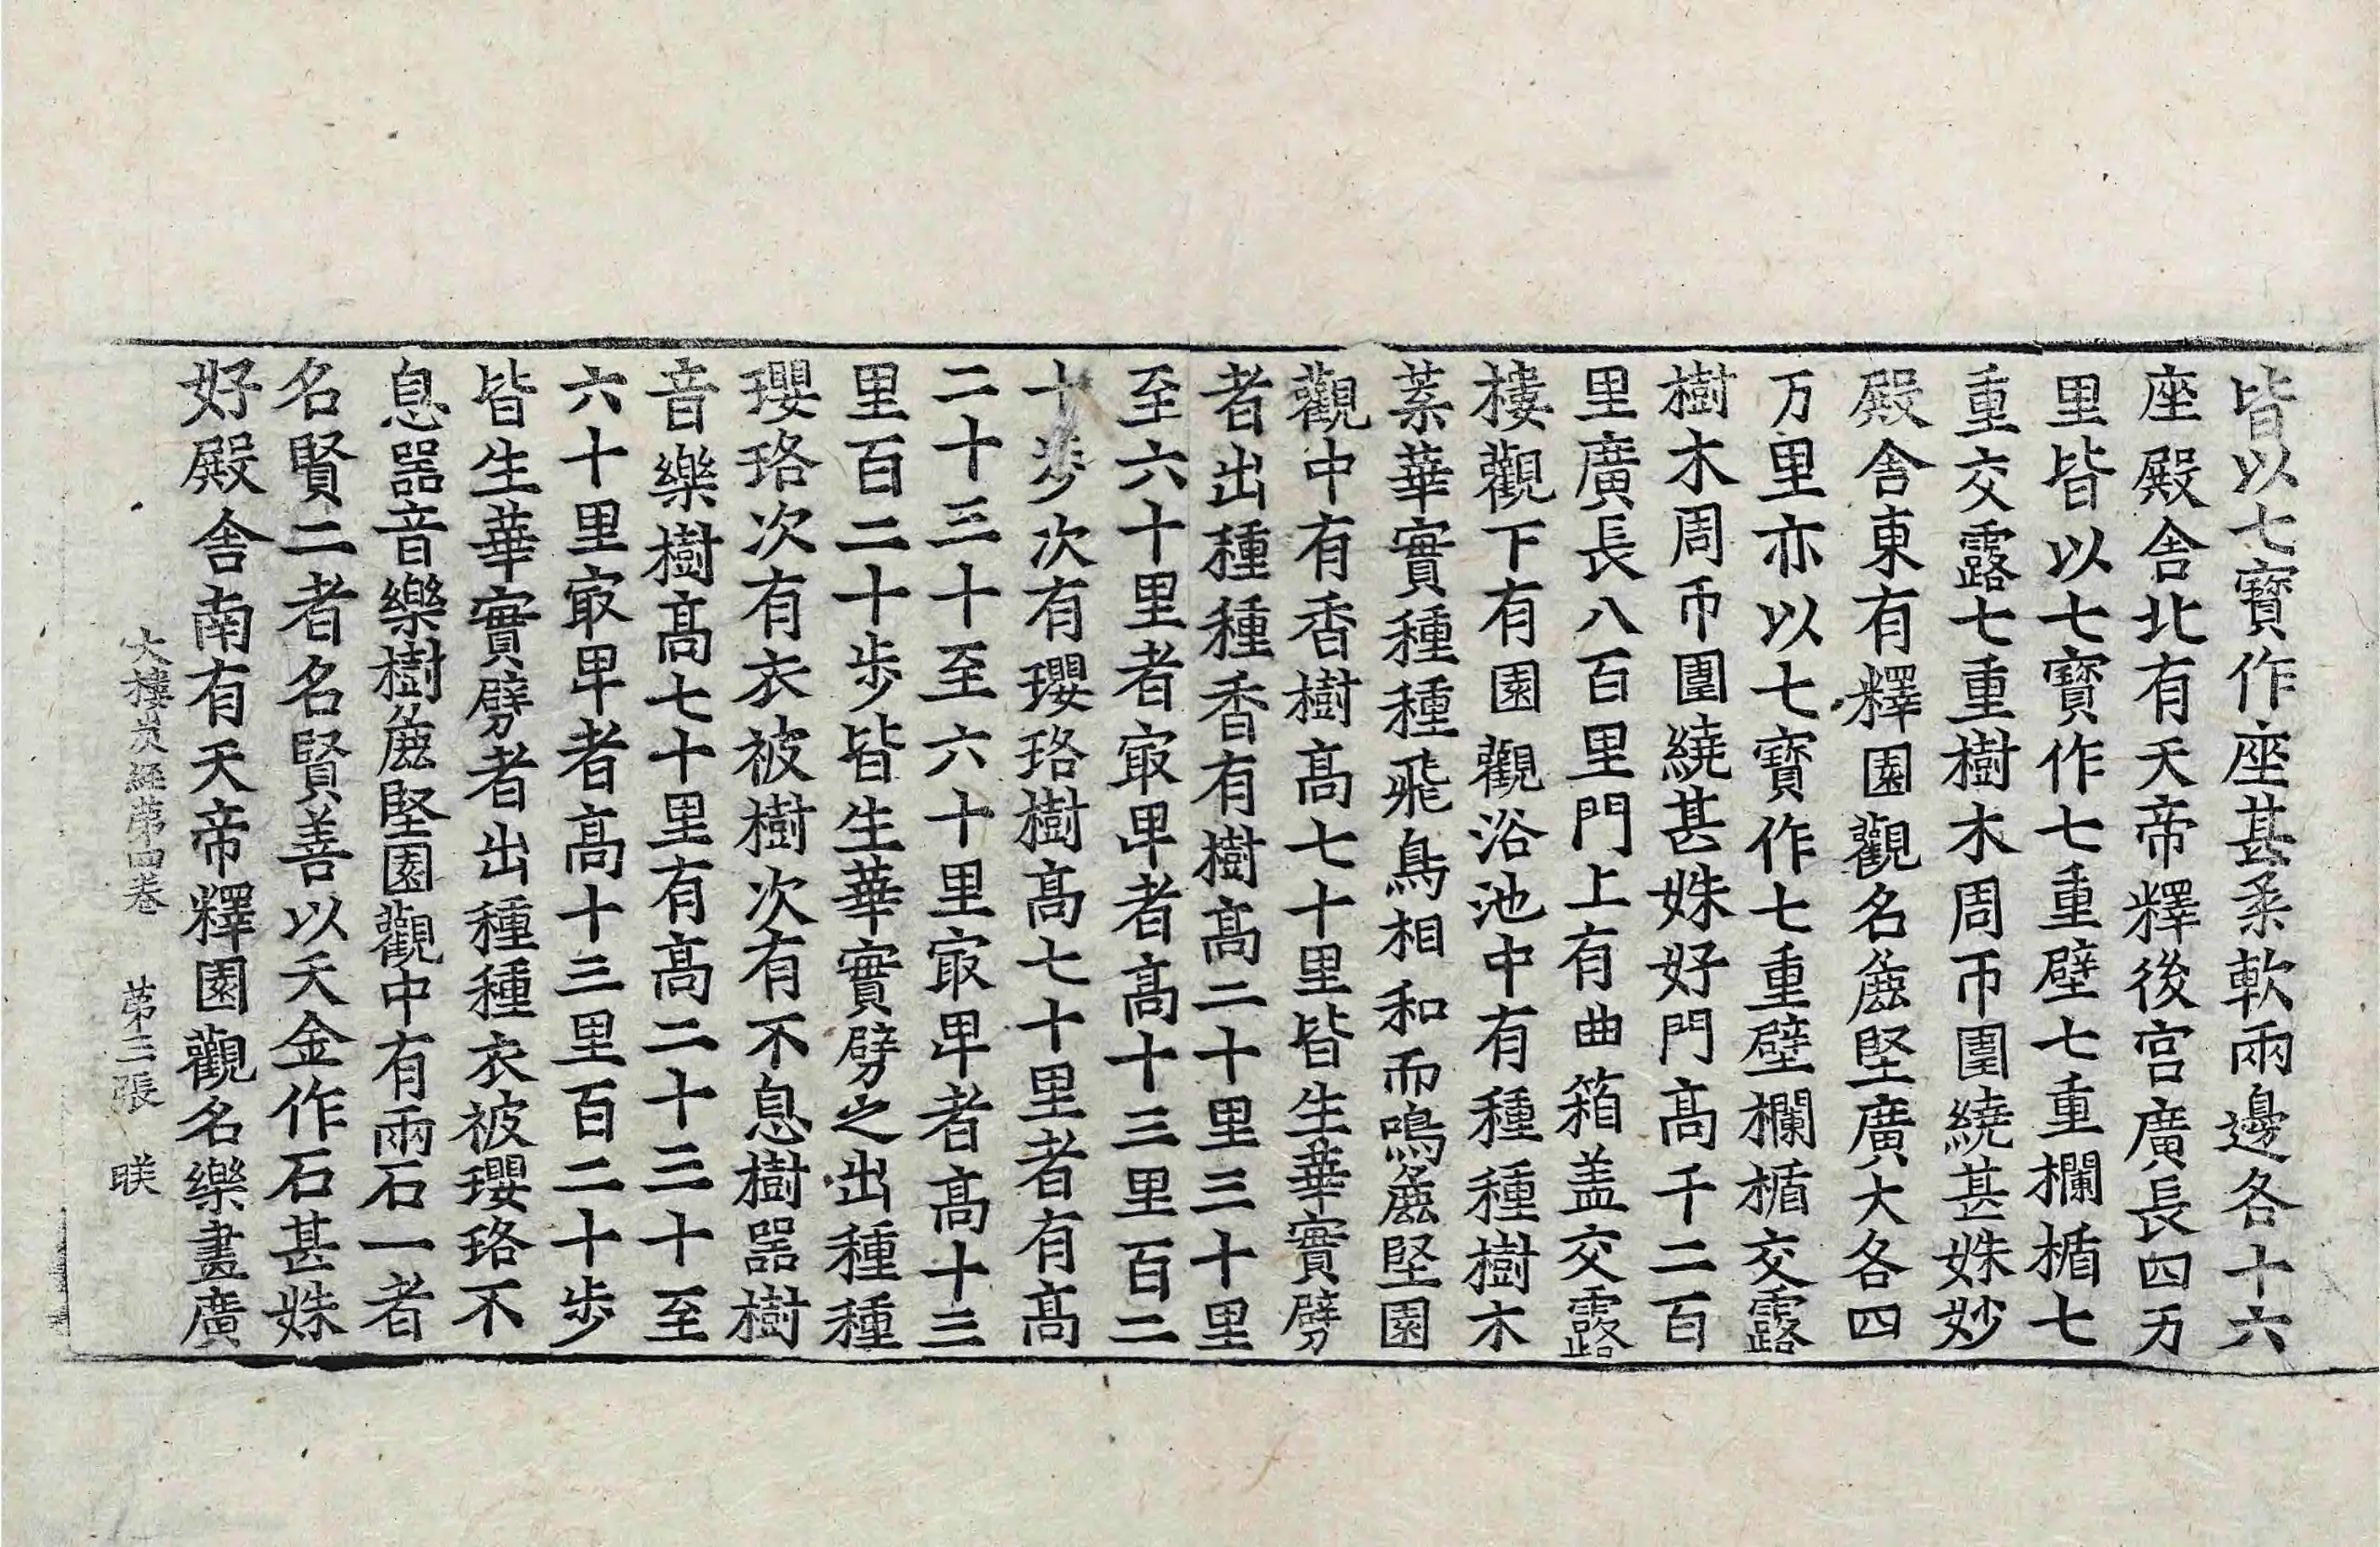 皆以七寶作座甚柔軟兩邊各十六
座殿舍北有天帝釋後宮廣長四万
里皆以七寶作七重壁七重欄楯七
重交露七重樹木周帀圍繞甚姝妙
殿舍東有釋園觀名麁堅廣大各四
万里亦以七寶作七重壁欄楯交露
樹木周帀圍繞甚姝好門高千二百
里廣長八百里門上有曲箱盖交露
樓觀下有園觀浴池中有種種樹木
葉華實種種飛鳥相和而鳴麁堅園
觀中有香樹髙七十里皆生華實劈
者出種種香有樹髙二十里三十里
至六十里者㝡卑者髙十三里百二
十步次有瓔珞樹髙七十里者有髙
二十三十至六十里㝡卑者髙十三
里百二十步皆生華實劈之出種種
瓔珞次有衣被樹次有不息樹噐樹
音樂樹髙七十里有髙二十三十至
六十里㝡卑者髙十三里百二十步
皆生華實劈者出種種衣被瓔珞不
息噐音樂樹麁堅園觀中有兩石一者
名賢二者名賢善以天金作石甚姝
好殿舍南有天帝釋園觀名樂畫廣
大樓炭經第四卷　第三張　昳